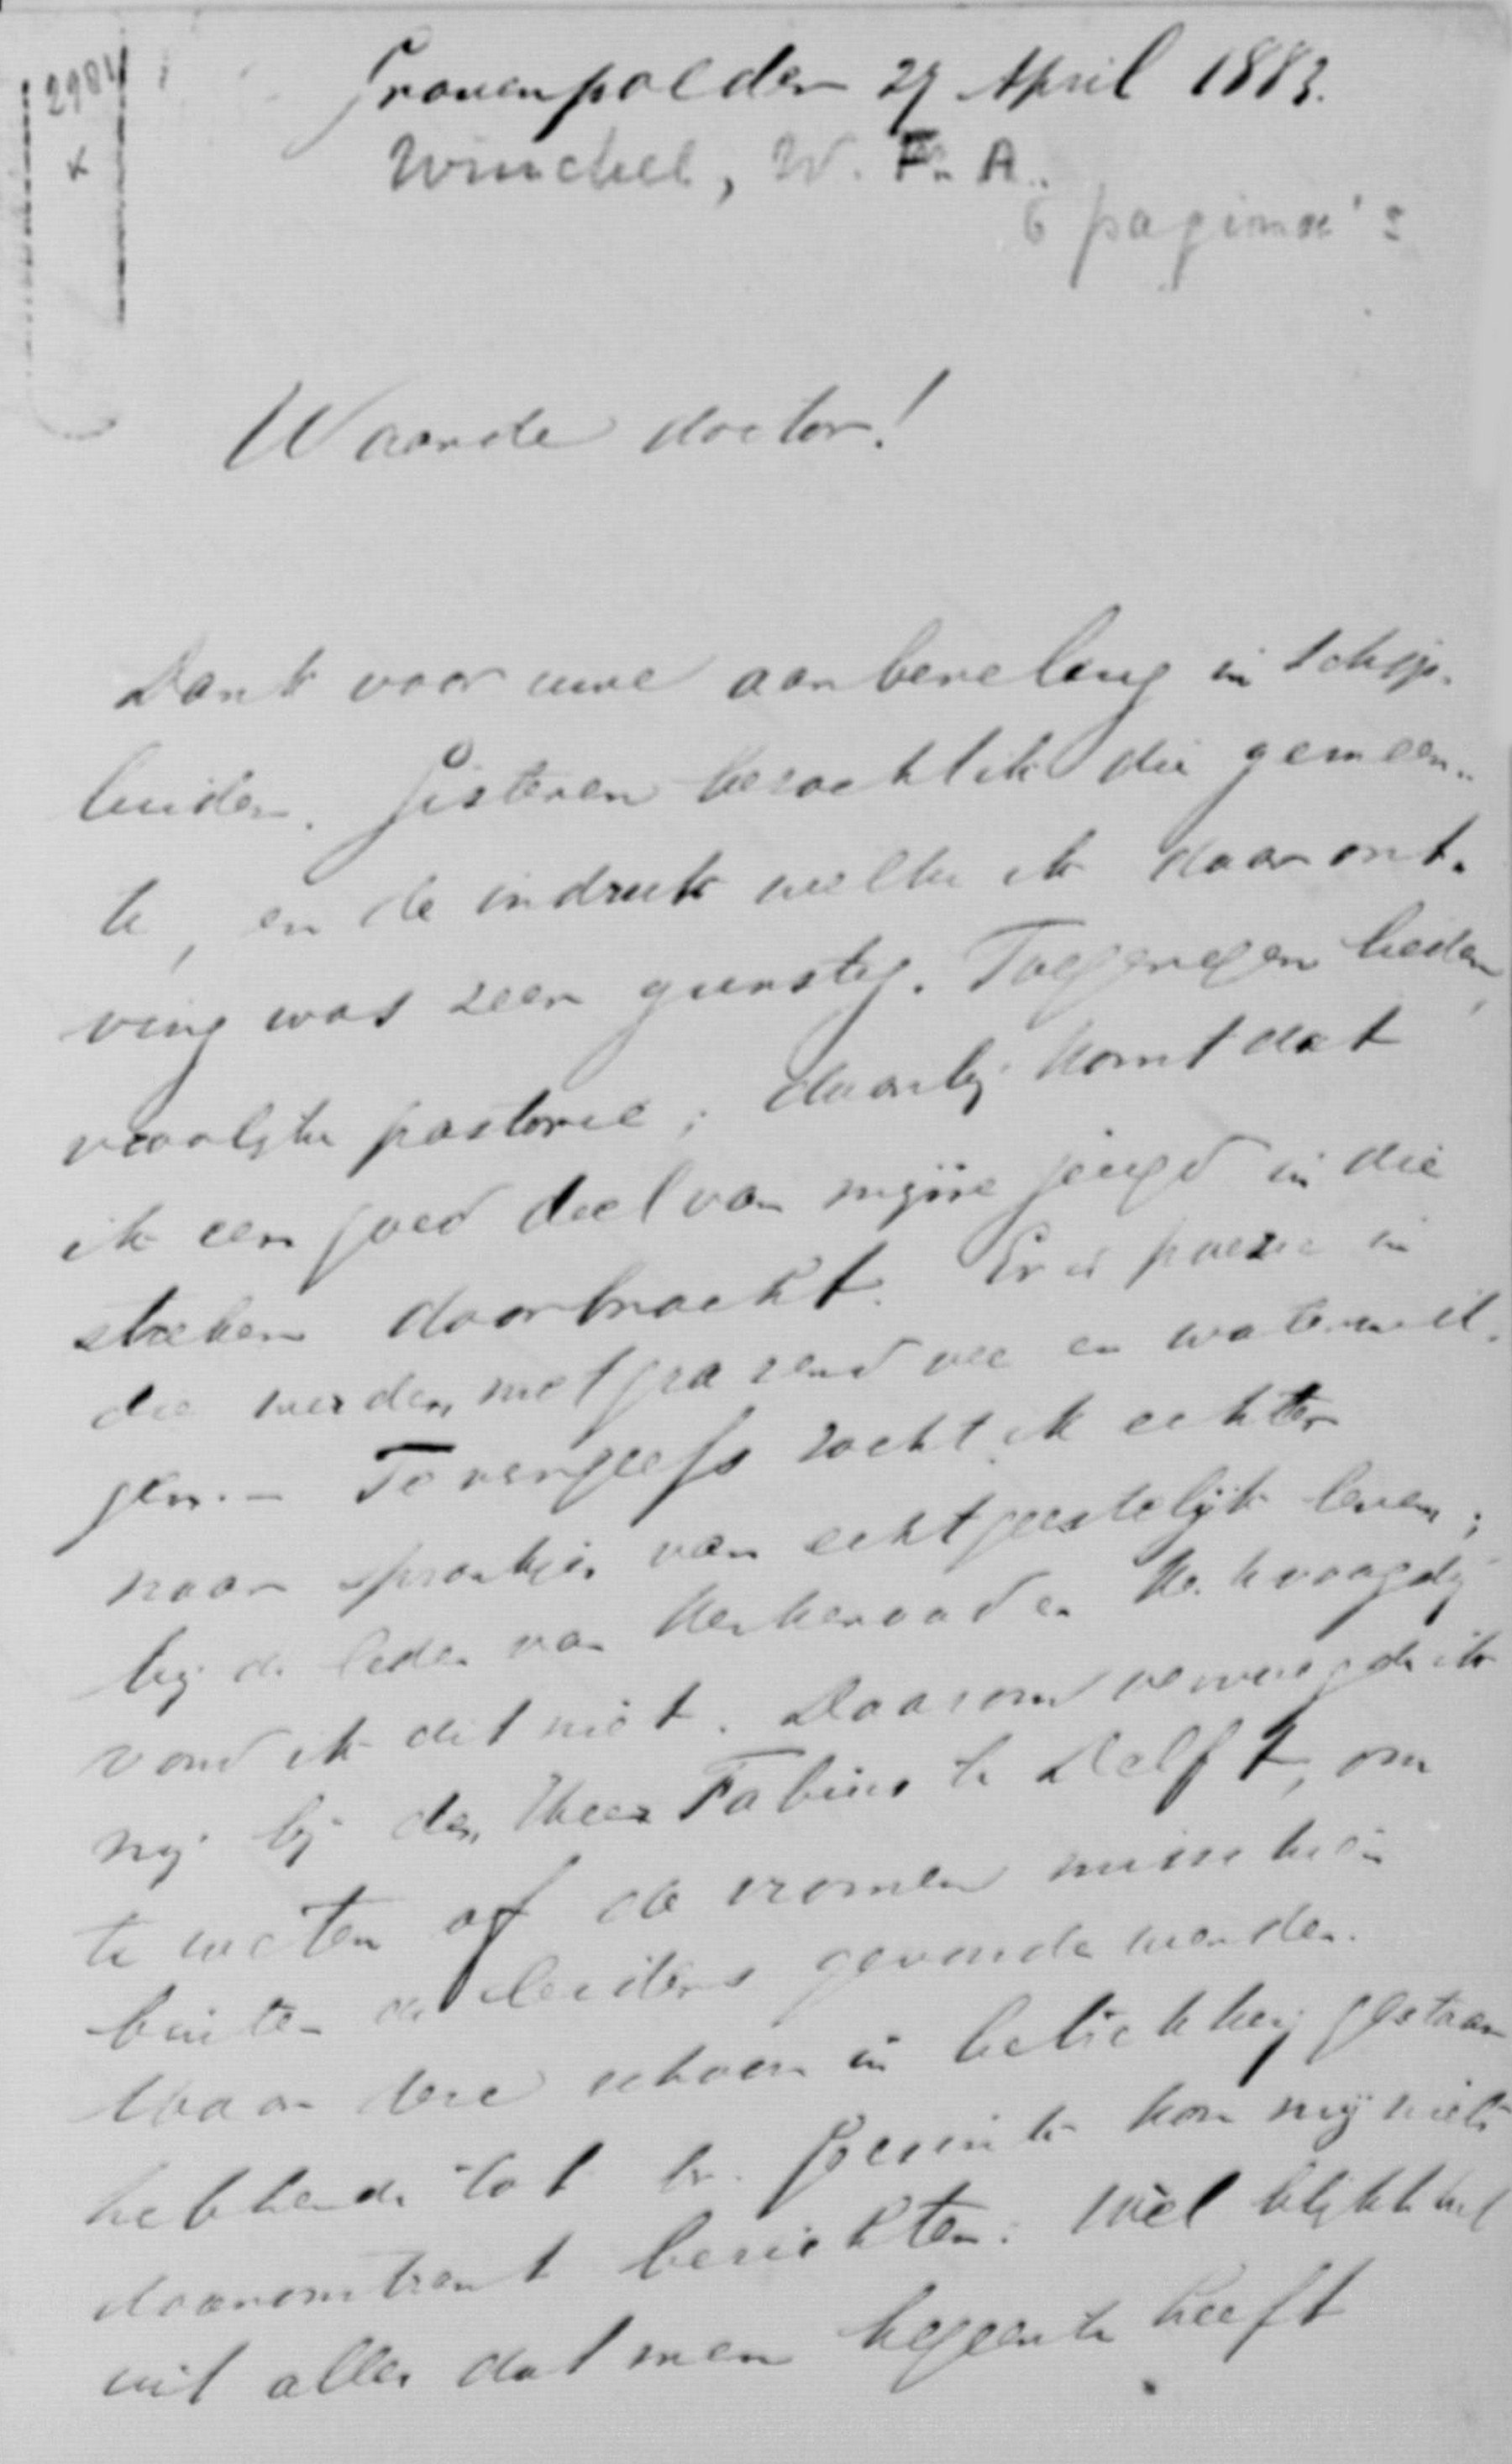 2984
x
Grauenpolder 27 April 1883.
Winckel, W. F. A.
6 pagina's
Waarde doctor!
Dank voor uwe aanbeveling in Schip-
luiden. Gisteren bezocht ik die gemeen-
te, en de indruk welke ik daar ont-
ving was zeer gunstig. Toegenegen lieden,
vroolijke pastorie; daarbij komt dat
ik een goed deel van mijne jeugd in die
streken doorbracht. Er is poezie in
die weiden met grazend vee en waterwil-
gen. – Te vergeefs zocht ik echter
naar spraakjes van echt geestelijk leven;
bij de leden van Kerkeraad en Kerkvoogdij
vond ik dit niet. Daarom vervoegde ik
mij bij den Heer Fabius te Delft, om
te weten of de vromen misschien
buiten de leiders gevonden werden.
Maar deze schoon in betrekking gestaan
hebbende tot br. Gesink kon mij niets
daaromtrent berichten. Wèl blijkt het
uit alles dat men begeerte heeft